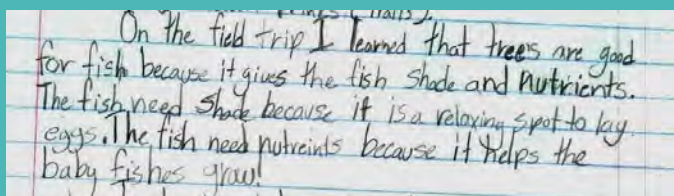 On the field trip I learned that trees are good
for fish because it gives the fish shade and nutrients.
The fish need shade because it is a relaxing spot to lay
eggs. The fish need nutreints because it helps the
baby fishes grow!